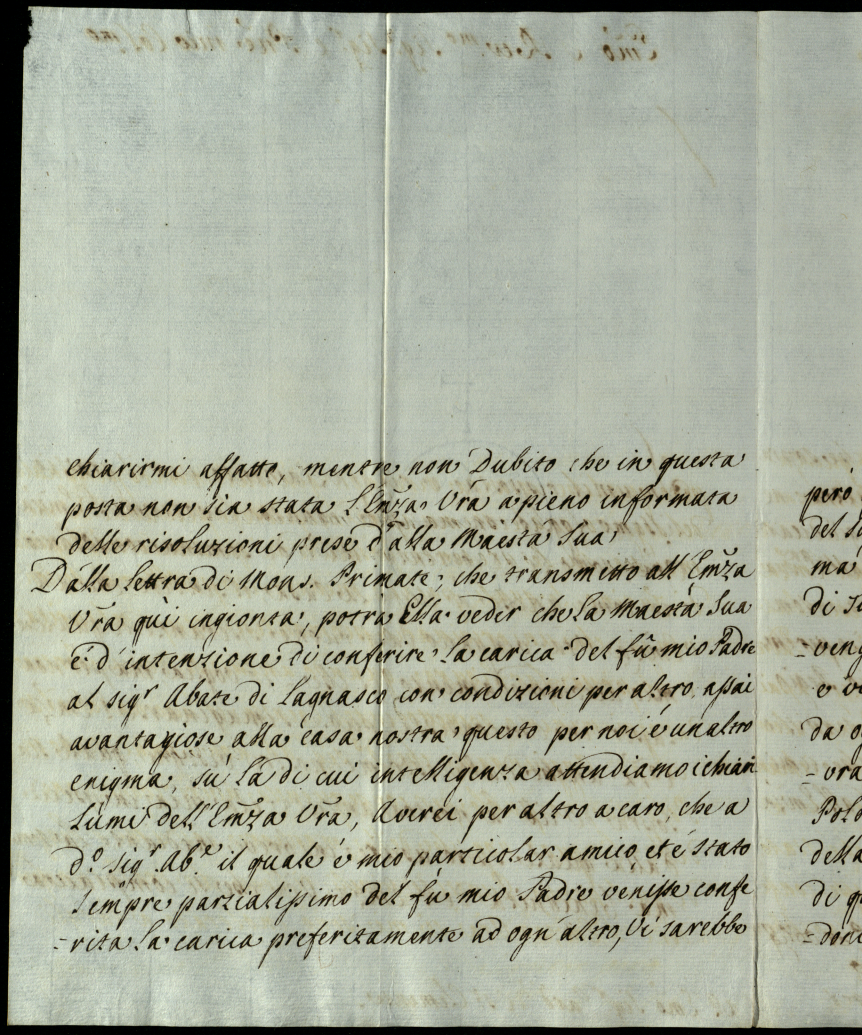 chiarirmi affatto, mentre non Dubito che in questa
posta non sia stata l'Em̃za Vrã a pieno informata
delle risoluzioni prese d'alla Maestà Sua
Dalla lettra di Mons. Primate, che transmetto all Em̃za
Vrã quì ingionta, potra Ella vedir che la Maestà Sua
é d'intenzione di conferire la carica del fù mio Padre
al sigr Abate di Lagnasco con condizioni per altro assai
avantagiose alla casa nostra questo per noi é un altro
enigma, sù la di cui intelligenza attendiamo i chiari
lumi dell'Em̃za Vrã, Averei per altro a caro, che a
d.o sigr Ab.e il quale é mio particolar amico et é stato
sempre parzialissimo del fù mio Padre venisse confe
=rita la carica preferitamente ad ogn'altro, Vi sarebbe
però
del
mà
di
=veng
e
da
=vra
Polo
della
di
=don